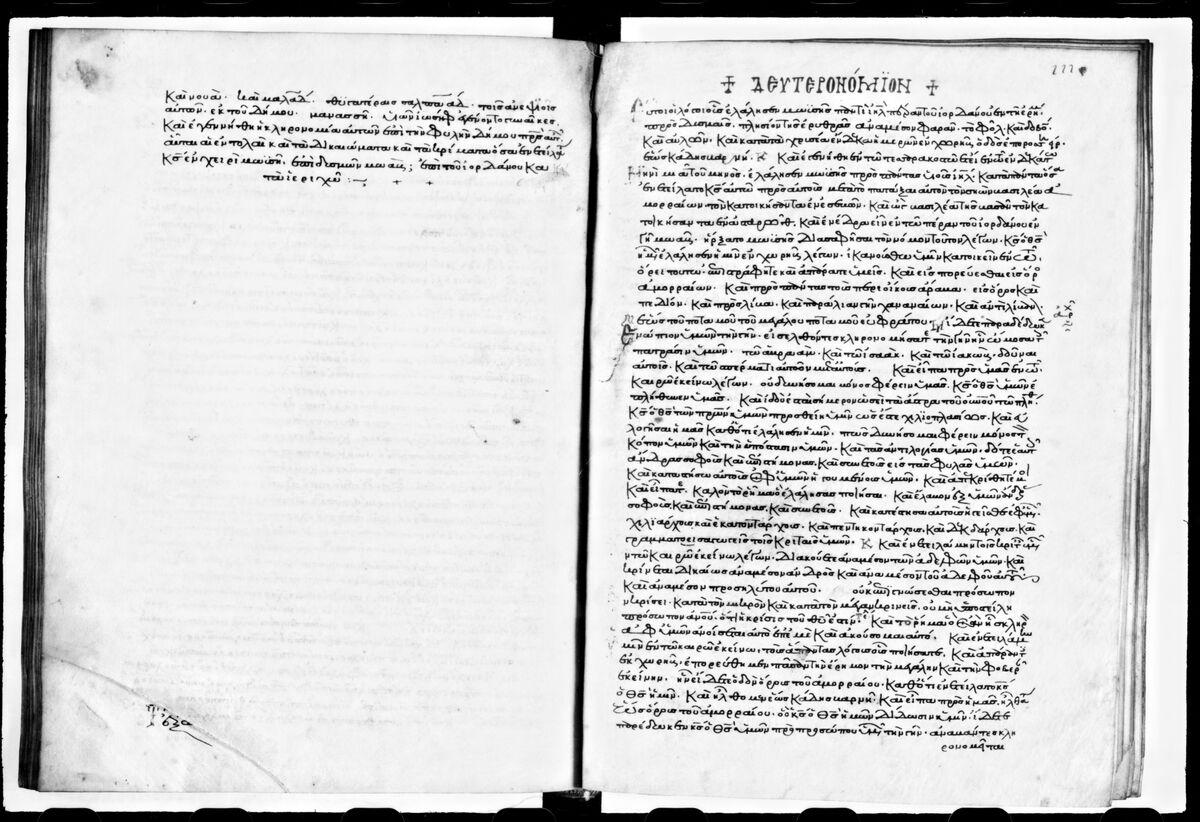 καὶ νουά. καὶ μααλάδ. θυγατέρες σαλπαάδ. τοῖς ἀνεψιοῖς
αὐτῶν. ἐκ τοῦ δήμου. μανασσῆ. υἱῶν ἰωσὴφ ἐγένοντο γυναῖκες.
καὶ ἐγενήθη ἡ κληρονομία αὐτῶν ἐπὶ τὴν φυλὴν δήμου πρς αὐτ
αὗται αἱ ἐντολαὶ καὶ τὰ δικαιώματα καὶ τὰ κρίματα ὅσα ἐνετείλατο
κς ἐν χειρὶ μωυσῆ. ἐπὶ δυσμῶν μωάβ; ἐπὶ τοῦ ἰορδάνου κα
τὰ ἰεριχώ :
+ ΔΕΥΤΕΡΟΝΟΜΙΟΝ +
οὗτοι οἱ λόγοι οὓς ἐλάλησεν μωυσῆς παντὶ ιηλ πέραν τοῦ ἰορδάνου ἐν τῇ ἐρή
πρὸς δυσμαῖς. πλησίον τῆς ἐρυθρᾶς ἀναμέσον φαράν. τοφόλ. καὶ λοβόν
καὶ αὐλῶν. καὶ καταχρύσεα ἕνδεκα ἡμερῶν ἐν χωρήβ. ὁδὸς ἐπ ὄρος
ἕως κάδης βαρνή. καὶ ἐγενήθη ἐν τῷ τεσσαρακοστῷ ἔτει ἐν τῷ ἑνδεκάτῳ
μηνὶ μιᾷ τοῦ μηνός. ἐλάλησεν μωυσῆς πρὸς πάντας υἱοὺς ιηλ. κατὰ πάντα ὅσα
ἐνετείλατο κς αὐτῷ πρὸς αὐτούς μετὰ τὸ πατάξαι αὐτὸν τὸν σηὼν βασιλέα ἀ
μορραίων. τὸν κατοικήσαντα ἐν ἐσεβών. καὶ ὢγ βασιλέα τῆς βασὰν τὸν κα
τοικήσαντα ἐν ἀσταρώθ. καὶ ἐν ἐδραεὶν ἐν τῷ πέραν τοῦ ἰορδάνου ἐν
γῇ μωάβ. ἤρξατο μωυσῆς διασαφῆσαι τὸν νόμον τοῦτον λέγων. κς ὁ θς
ἡμῶν ἐλάλησεν ἡμῖν ἐν χωρὴβ λέγων. ἱκανούσθω ὑμῖν κατοικεῖν ἐν τῷ
ὄρει τούτω. ἐπιστράφητε καὶ ἀπάρατε ὑμεῖς. καὶ εἰσπορεύεσθε εἰς ὄρος
ἀμορραίων. καὶ πρὸς πάντας τοὺς περιοίκους ἄραβα. εἰς ὄρος καὶ
πεδίον. καὶ πρὸς λίβα. καὶ παραλίαν γῆν χαναναίων. καὶ ἀντιλίβανον.
ἕως τοῦ ποταμοῦ τοῦ μεγάλου ποταμοῦ εὐφράτου. ἴδετε παραδέδωκεν
ἐνώπιον ὑμῶν τὴν γῆν. εἰσελθόντες κληρονομήσατε τὴν γῆν ἣν ὤμοσα τοῖς
πατράσιν ὑμῶν. τῷ ἀβραάμ. καὶ τῷ ἰσαάκ. καὶ τῷ ἰακώβ. δοῦναι
αὐτοῖς. καὶ τῷ σπέρματι αὐτῶν μετ αὐτούς. καὶ εἶπα πρὸς ὑμᾶς ἐν τῷ
καιρῷ ἐκείνω λέγων. οὐ δυνήσομαι μόνος φέρειν ὑμᾶς. κς ὁ θς ὑμῶν ἐ
πλήθυνεν ὑμᾶς. καὶ ἰδού ἐστε σήμερον ὡσεὶ τὰ ἄστρα τοῦ οὐνοῦ τῷ πλήθ.
κς ὁ θς τῶν πρων ὑμῶν προσθείη ὑμῖν ὥς ἐστε χιλιοπλασίως. καὶ εὐ
λογήσαι ὑμᾶς καθότι ἐλάλησεν ὑμῖν. πῶς δυνήσομαι φέρειν μόνος τὸν
κόπον ὑμῶν καὶ τὴν ὑπόστασιν ὑμῶν. καὶ τὰς ἀντιλογίας ὑμῶν. δότε ἑαυτ
ἄνδρας σοφοὺς καὶ ἐπιστήμονας. καὶ συνετοὺς εἰς τὰς φυλὰς ὑμῶν.
καὶ καταστήσω αὐτοὺς ἐφ ὑμῶν ἡγουμένους ὑμῶν. καὶ ἀπεκρίθητέ μοι
καὶ εἴπατε. καλὸν τὸ ῥῆμα ὃ ἐλάλησας ποιῆσαι. καὶ ἔλαβον ἐξ ὑμῶν ἄνδρ
σοφοὺς. καὶ ἐπιστήμονας. καὶ συνετούς. καὶ κατέστησα αὐτοὺς ἡγεῖσθαι ἐφ ὑμῶν
χιλιάρχους καὶ ἑκατοντάρχους. καὶ πεντηκοντάρχους. καὶ δεκαδάρχους. καὶ
γραμματοεισαγωγεῖς τοῖς κριταῖς ὑμῶν. καὶ ἐνετειλάμην τοῖς κριταῖς ὑμῶν
ἐν τῷ καιρῷ ἐκείνω λέγων. διακούετε ἀναμέσον τῶν ἀδελφῶν ὑμῶν. καὶ
κρίνεται δικαίως ἀναμέσον ἀνδρὸς καὶ ἀναμέσον τοῦ ἀδελφοῦ αὐτοῦ
καὶ ἀναμέσον προσηλύτου αὐτοῦ. οὐκ ἐπιγνώσεσθαι πρόσωπον
ἐν κρίσει. κατὰ τὸν μικρὸν καὶ κατὰ τὸν μέγαν κρινεῖς. οὐ μὴ ὑποστείλη
πρόσωπον ανου. ὅτι ἡ κρίσις τοῦ θυ ἐστίν. καὶ τὸ ῥῆμα ὃ ἐὰν ᾖ σκληρὸν
ἀφ ὑμῶν ἀνοίσεται αὐτὸ ἐπ ἐμὲ καὶ ἀκούσομαι αὐτό. καὶ ἐνετειλάμην
ὑμῖν ἐν τῷ καιρῷ ἐκείνω. τοὺς πάντας λόγους οὓς ποιήσατε. καὶ ἀπάραντες
ἐκ χωρήβ. ἐπορεύθημεν πᾶσαν τὴν ἔρημον τὴν μεγάλην καὶ τὴν φοβερὰν
ἐκείνην. ἣν εἴδετε ὁδὸν ὄρους τοῦ ἀμορραίου. καθότι ἐνετείλατο κς
ὁ θς ἡμῶν. καὶ ἤλθομεν ἕως κάδης βαρνή. καὶ εἶπα πρὸς ὑμᾶς. ἤλθατε
ἕως ὄρους τοῦ ἀμορραίου. ὃ κς ὁ θς ἡμῶν δίδωσιν ὑμῖν. ἴδετε
παρέδωκεν κς ὁ θς ὑμῶν πρὸ προσώπου ὑμῶν τὴν γῆν. ἀναβάντες κλη
ρονομεῖται